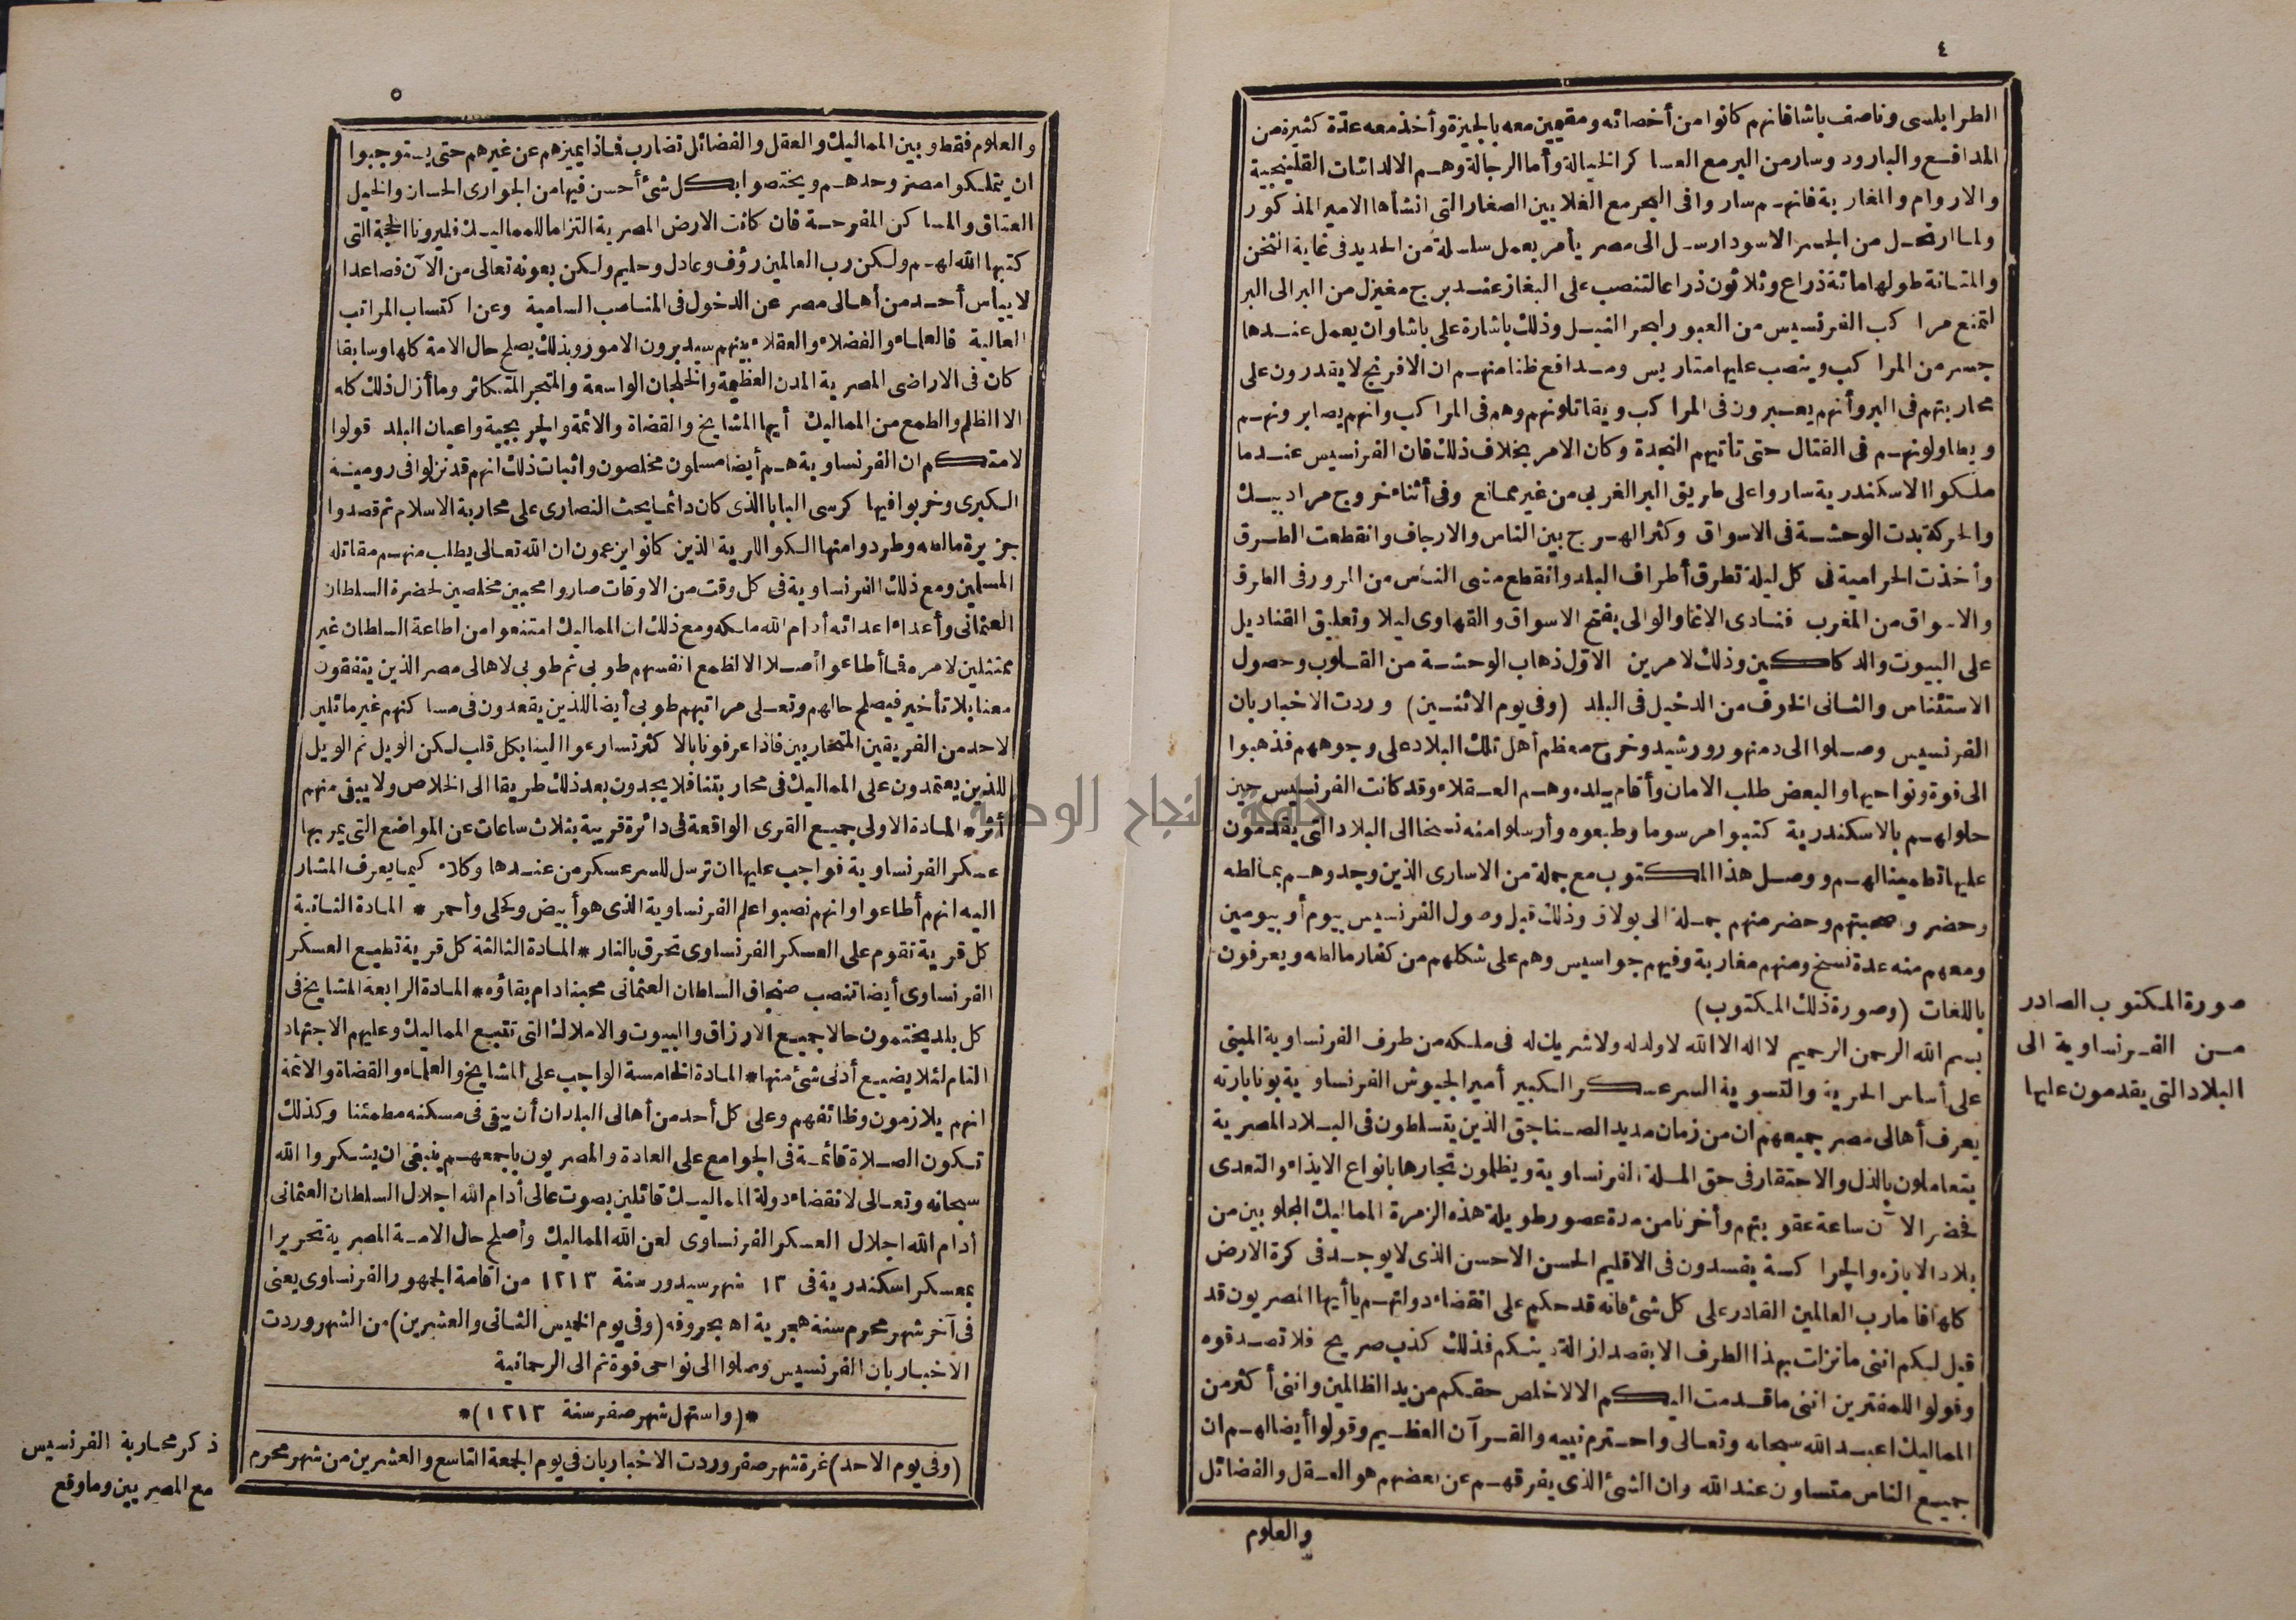 ٤
الطرابلسى وناصف باشا فانهم كانوا من أخصائه ومقيمين معه بالجيزة وأخذ معه عدّة كثيرة من
المدافع والبارود وسار من البر مع العساكر الخيالة وأما الرجالة وهم الالداشات القلينجية
والاروام والمغاربة فانهم ساروا فى البحر مع الغلايين الصغار التى انشأها الامير المذكور
ولما ارتحل من الجسر الاسود ارسل الى مصر يأمر بعمل سلسلة من الحديد فى غاية الثخن
والمتانة طولها مائة ذراع وثلاثون ذراعا لتنصب على البغاز عند برج مغيزل من البر الى البر
لتمنع مراكب الفرنسيس من العبور لبحر النيل وذلك باشارة على باشا وان يعمل عندها
جسر من المراكب وينصب عليها متاريس ومدافع ظنا منهم ان الافرنج لا يقدرون على
محاربتهم فى البر وأنهم يعبرون فى المراكب ويقاتلونهم وهم فى المراكب وانهم يصابرونهم
ويطاولونهم فى القتال حتى تأتيهم النجدة وكان الامر بخلاف ذلك فان الفرنسيس عندما
ملكوا الاسكندرية ساروا على طريق البر الغربى من غير ممانع وفى أثناء خروج مراد بيك
والحركة بدت الوحشة فى الاسواق وكثر الهرج بين الناس والارجاف وانقطعت الطرق
وأخذت الحرامية فى كل ليلة تطرق أطراف البلد وانقطع مشى الناس من المرور فى الطرق
والاسواق من المغرب فنادى الاغا والوالى بفتح الاسواق والقهاوى ليلا وتعليق القناديل
على البيوت والدكاكين وذلك لامرين الاوّل ذهاب الوحشة من القلوب وحصول
الاستئناس والثانى الخوف من الدخيل فى البلد (وفى يوم الاثنين) وردت الاخبار بان
الفرنسيس وصلوا الى دمنهور ورشيد وخرج معظم أهل تلك البلاد على وجوههم فذهبوا
الى فوة ونواحيها والبعض طلب الامان وأقام ببلده وهم العقلاء وقد كانت الفرنسيس حين
حلولهم بالاسكندرية كتبوا مرسوما وطبعوه وأرسلوا منه نسخا الى البلاد التى يقدمون
عليها تطمينا لهم ووصل هذا المكتوب مع جملة من الاسارى الذين وجدوهم بمالطه
وحضروا صحبتهم وحضر منهم جملة الى بولاق وذلك قبل وصول الفرنسيس بيوم أو بيومين
ومعهم منه عدة نسخ ومنهم مغاربة وفيهم جواسيس وهم على شكلهم من كفار مالطه ويعرفون
باللغات (وصورة ذلك المكتوب)
صورة المكتوب الصادر
من الفرنساوية الى
البلاد التى يقدمون عليها
بسم الله الرحمن الرحيم لا اله الا الله لا ولد له ولا شريك له فى ملكه من طرف الفرنساوية المبنى
على أساس الحرية والتسوية السر عسكر الكبير أمير الجيوش الفرنساوية بونابارته
يعرف أهالى مصر جميعهم ان من زمان مديد الصناجق الذين يتسلطون فى البلاد المصرية
يتعاملون بالذل والاحتقار فى حق الملة الفرنساوية ويظلمون تجارها بانواع الايذاء والتعدى
فحضر الآن ساعة عقوبتهم وأخرنا من مدة عصور طويلة هذه الزمرة المماليك المجلوبين من
بلاد الابازه والجراكسة يفسدون فى الاقليم الحسن الاحسن الذى لا يوجد فى كرة الارض
كلها فاما رب العالمين القادر على كل شئ فانه قد حكم على انقضاء دولتهم يا أيها المصريون قد
قيل لكم اننى ما نزلت بهذا الطرف الا بقصد ازالة دينكم فذلك كذب صريح فلا تصدقوه
وقولوا للمفترين اننى ما قدمت اليكم الا لاخلص حقكم من يد الظالمين واننى أكثر من
المماليك اعبد الله سبحانه وتعالى واحترم نبيه والقرآن العظيم وقولوا أيضا لهم ان
جميع الناس متساوون عند الله وان الشئ الذى يفرقهم عن بعضهم هو العقل والفضائل
والعلوم
٥
والعلوم فقط وبين المماليك والعقل والفضائل تضارب فماذا يميزهم عن غيرهم حتى يستوجبوا
ان يتملكوا مصر وحدهم ويختصوا بكل شئ أحسن فيها من الجوارى الحسان والخيل
العتاق والمساكن المفرحة فان كانت الارض المصرية التزاما للمماليك فليرونا الحجة التى
كتبها الله لهم ولكن رب العالمين رؤف وعادل وحليم ولكن بعونه تعالى من الآن فصاعدا
لا ييأس أحد من أهالى مصر عن الدخول فى المناصب السامية وعن اكتساب المراتب
العالية فالعلماء والفضلاء والعقلاء بينهم سيدبرون الامور وبذلك يصلح حال الامة كلها وسابقا
كان فى الاراضى المصرية المدن العظيمة والخلجان الواسعة والمتجر المتكاثر وما أزال ذلك كله
الا الظلم والطمع من المماليك أيها المشايخ والقضاة والائمة والجربجية واعيان البلد قولوا
لامتكم ان الفرنساوية هم أيضا مسلمون مخلصون واثبات ذلك انهم قد نزلوا فى رومية
الكبرى وخربوا فيها كرسى البابا الذى كان دائما يحث النصارى على محاربة الاسلام ثم قصدوا
جزيرة مالطه وطردوا منها الكواللرية الذين كانوا يزعمون ان الله تعالى يطلب منهم مقاتلة
المسلمين ومع ذلك الفرنساوية فى كل وقت من الاوقات صاروا محبين مخلصين لحضرة السلطان
العثمانى وأعداء اعدائه أدام الله ملكه ومع ذلك ان المماليك امتنعوا من اطاعة السلطان غير
ممتثلين لامره فما أطاعوا أصلا الا لطمع انفسهم طوبى ثم طوبى لاهالى مصر الذين يتفقون
معنا بلا تأخير فيصلح حالهم وتعلى مراتبهم طوبى أيضا للذين يقعدون فى مساكنهم غير مائلين
لاحد من الفريقين المتحاربين فاذا عرفونا بالاكثر تسارعوا الينا بكل قلب لكن الويل ثم الويل
للذين يعتمدون على المماليك فى محاربتنا فلا يجدون بعد ذلك طريقا الى الخلاص ولا يبقى منهم
أثر * المادة الاولى جميع القرى الواقعة فى دائرة قريبة بثلاث ساعات عن المواضع التى يمر بها
عسكر الفرنساوية فواجب عليها ان ترسل للسر عسكر من عندها وكلاء كيما يعرف المشار
اليه انهم أطاعوا وانهم نصبوا علم الفرنساوية الذى هو أبيض وكحلى وأحمر * المادة الثانية
كل قرية تقوم على العسكر الفرنساوى تحرق بالنار * المادة الثالثة كل قرية تطيع العسكر
الفرنساوى أيضا تنصب صنجاق السلطان العثمانى محبنا دام بقاؤه * المادة الرابعة المشايخ فى
كل بلد يختمون حالا جميع الارزاق والبيوت والاملاك التى تتبع المماليك وعليهم الاجتهاد
التام لئلا يضيع أدنى شئ منها * المادة الخامسة الواجب على المشايخ والعلماء والقضاة والائمة
انهم يلازمون وظائفهم وعلى كل أحد من أهالى البلدان أن يبقى فى مسكنه مطمئنا وكذلك
تكون الصلاة قائمة فى الجوامع على العادة والمصريون باجمعهم ينبغى ان يشكروا الله
سبحانه وتعالى لانقضاء دولة المماليك قائلين بصوت عالى أدام الله اجلال السلطان العثمانى
أدام الله اجلال العسكر الفرنساوى لعن الله المماليك وأصلح حال الامة المصرية تحريرا
بمعسكر اسكندرية فى ١٣ شهر سيدور سنة ١٢١٣ من اقامة الجمهور الفرنساوى يعنى
فى آخر شهر محرم سنة هجرية اه بحروفه (وفى يوم الخميس الثانى والعشرين) من الشهر وردت
الاخبار بان الفرنسيس وصلوا الى نواحى فوة ثم الى الرحمانية
*(واستهل شهر صفر سنة ١٢١٣)*
(وفى يوم الاحد) غرة شهر صفر وردت الاخبار بان فى يوم الجمعة التاسع والعشرين من شهر محرم
ذكر محاربة الفرنسيس
مع المصريين وما وقع
جامعة النجاح الوطنية